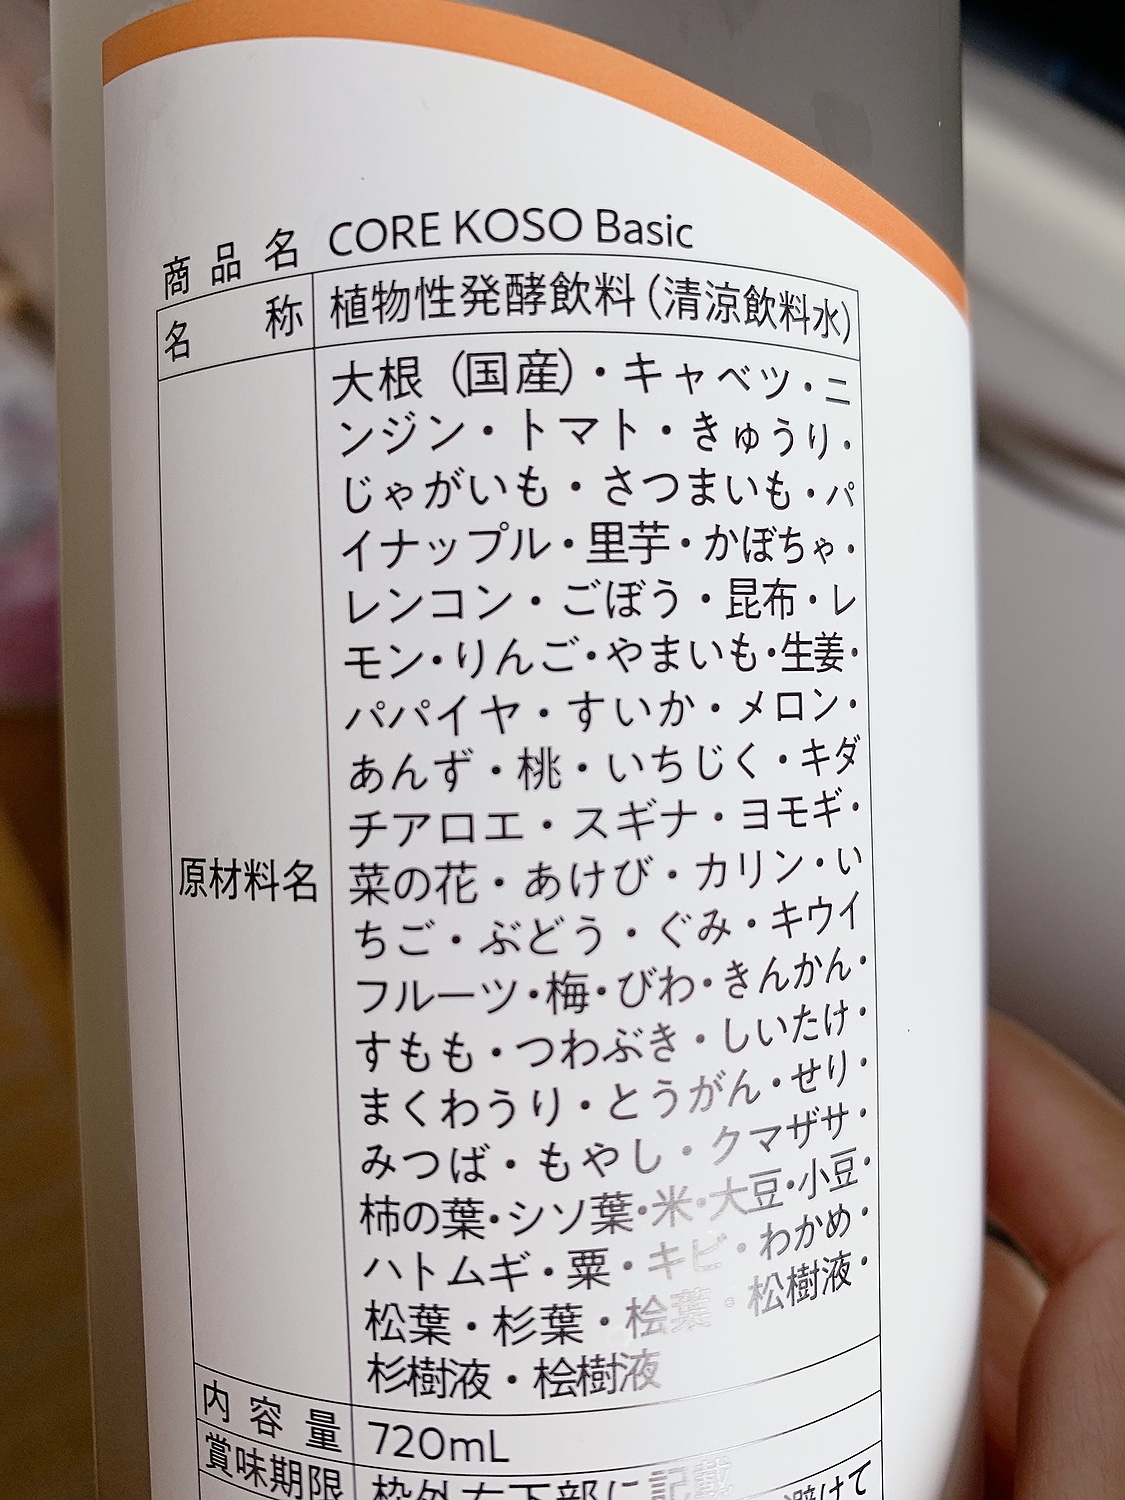 商品名 CORE KOSO Basic
名称 植物性発酵飲料（清涼飲料水）
大根（国産）・キャベツ・ニ
ンジン・トマト・きゅうり・
じゃがいも・さつまいも・パ
イナップル・里芋・かぼちゃ・
レンコン・ごぼう・昆布・レ
モン・りんご・やまいも・生姜・
パパイヤ・すいか・メロン・
あんず・桃・いちじく・キダ
チアロエ・スギナ・ヨモギ・
原材料名 菜の花・あけび・カリン・い
ちご・ぶどう・ぐみ・キウイ
フルーツ・梅・びわ・きんかん・
すもも・つわぶき・しいたけ・
まくわうり・とうがん・せり・
みつば・もやし・クマザサ・
柿の葉・シソ葉・米・大豆・小豆・
ハトムギ・粟・キビ・わかめ・
松葉・杉葉・桧葉・松樹液・
杉樹液・桧樹液
内容量 720mL
賞味期限 枠外右下部に記載
避けて